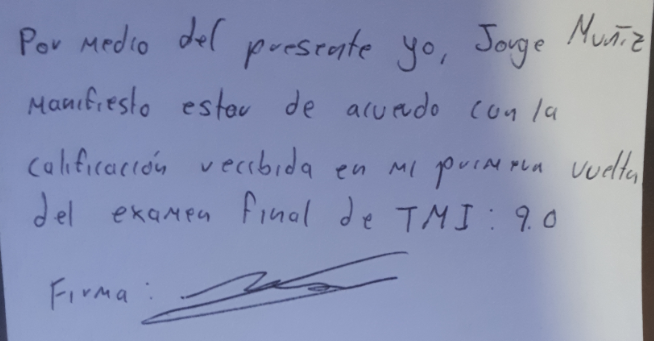 Por medio del presente yo, Jorge Muñiz
Manifiesto estar de acuerdo con la
calificación recibida en mi primera vuelta
del examen final de TMI: 9.0
Firma: